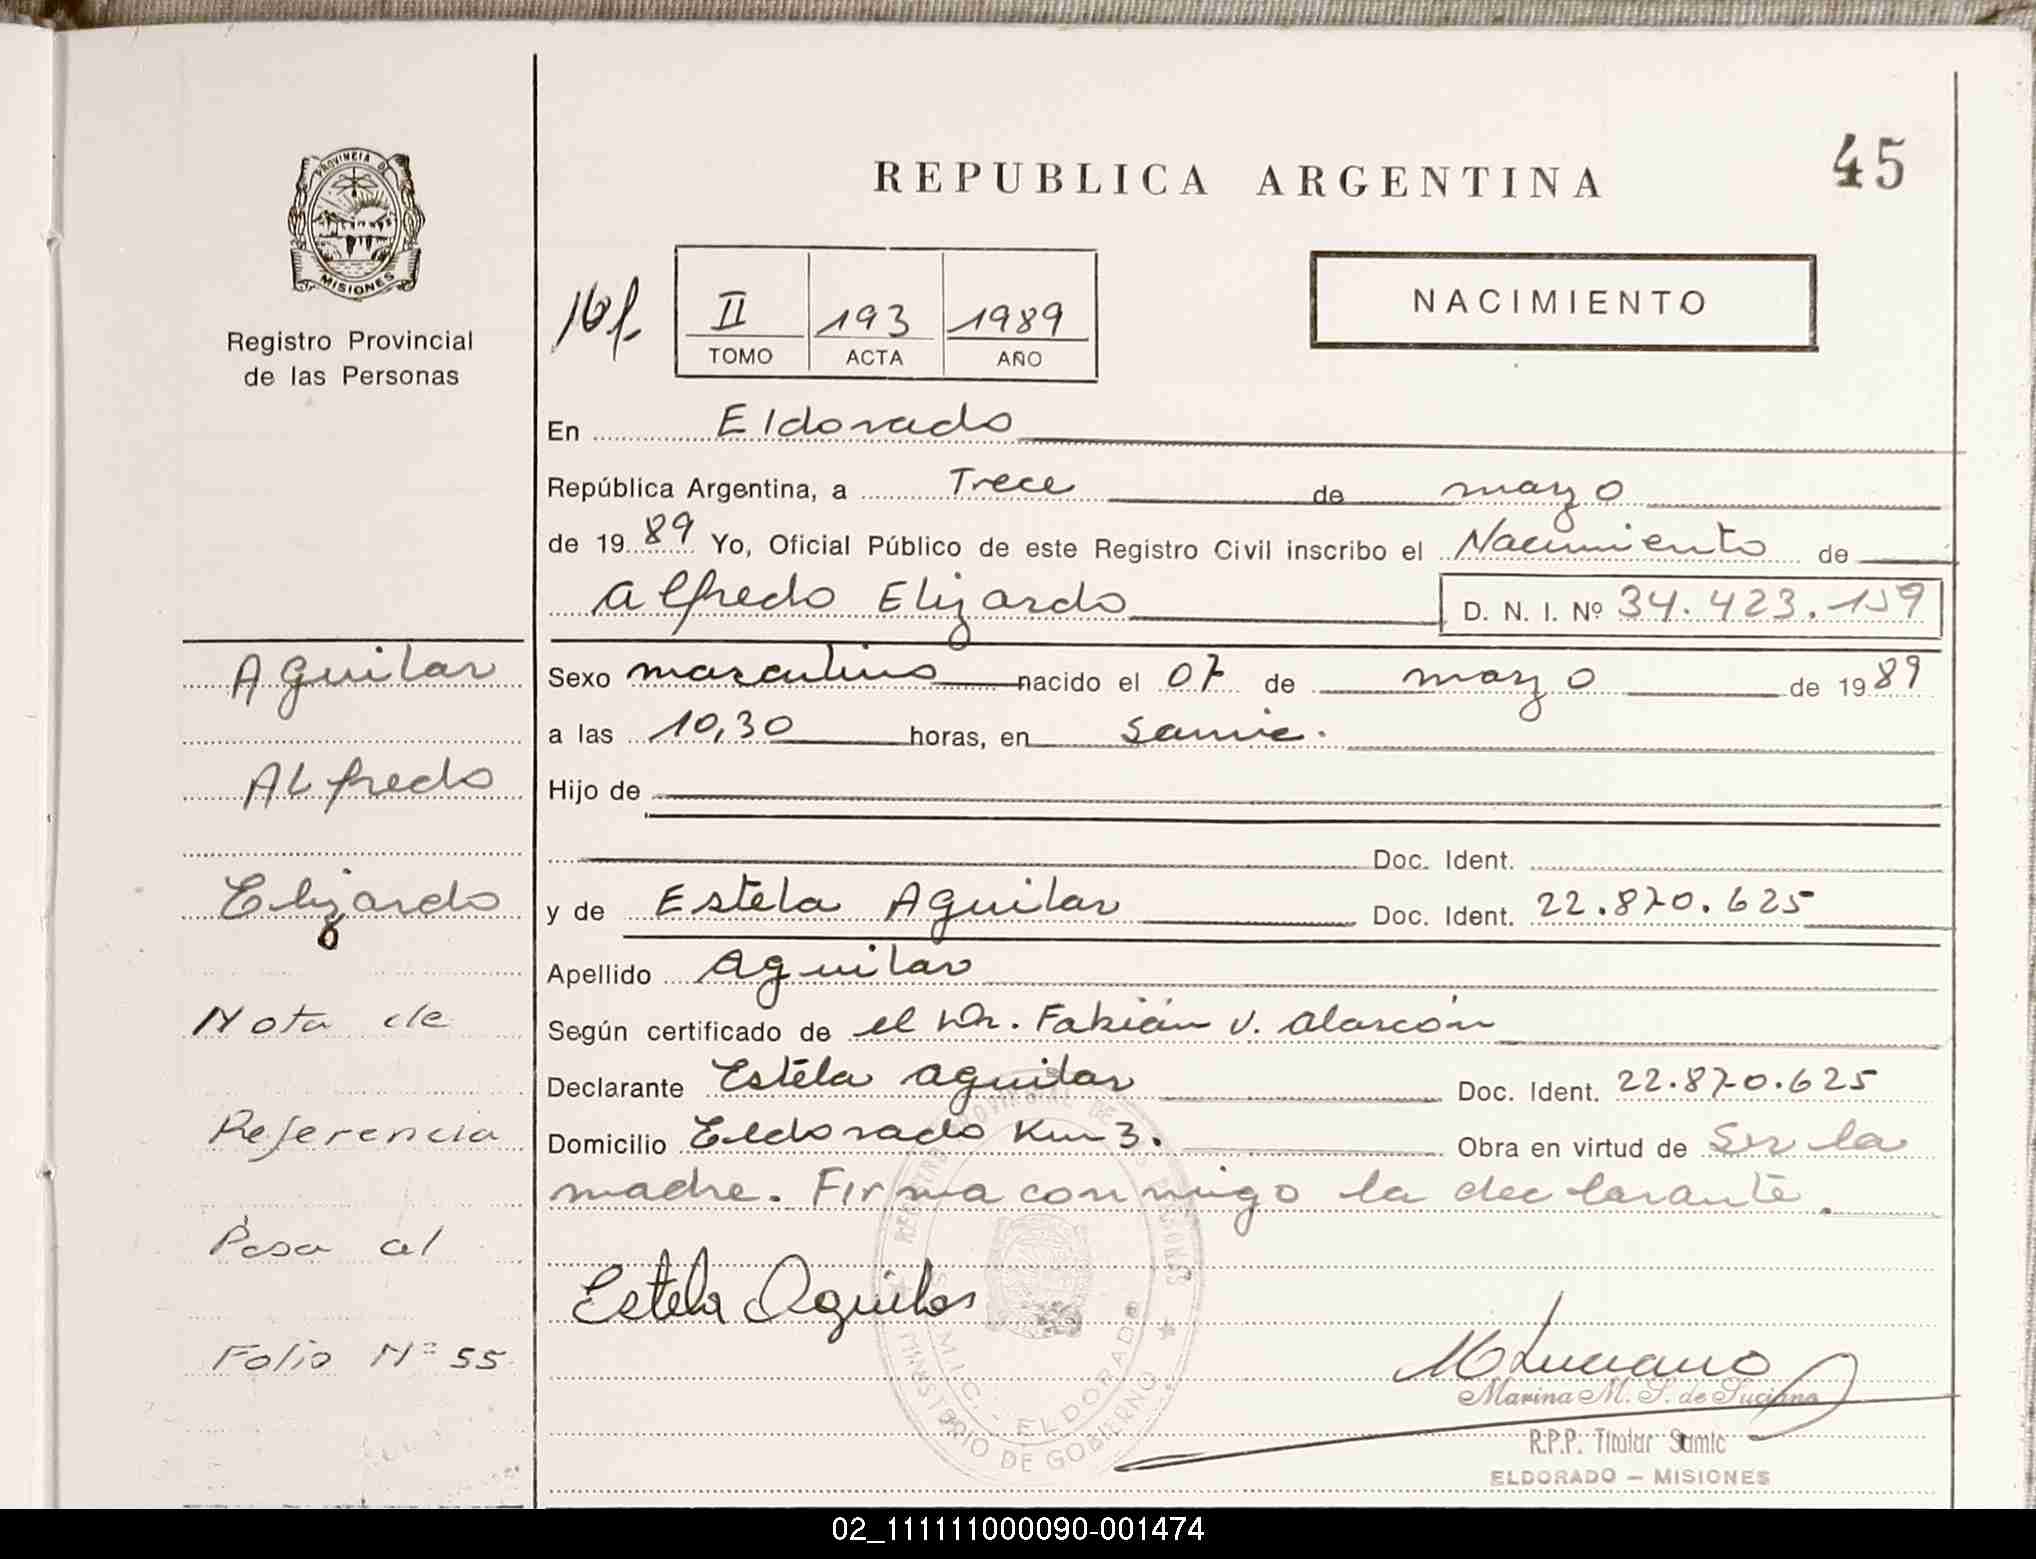 REPUBLICA ARGENTINA
45
PROVINCIA DE
MISIONES
Registro Provincial
de las Personas
II 193 1989
TOMO ACTA AÑO
NACIMIENTO
En Eldorado
República Argentina, a Trece de marzo
de 1989 Yo, Oficial Público de este Registro Civil inscribo el Nacimiento de
Alfredo Elizardo D. N. I. Nº 34.423.159
Sexo masculino nacido el 07 de marzo de 1989
a las 10,30 horas, en Samic.
Hijo de
Doc. Ident.
y de Estela Aguilar Doc. Ident. 22.870.625
Apellido Aguilar
Según certificado de el Dr. Fabián V. Alarcón
Declarante Estela Aguilar Doc. Ident. 22.870.625
Domicilio Eldorado Km 3. Obra en virtud de Ser la
madre. Firma conmigo la declarante.
Estela Aguilar
M Luciano
Marina M. S. de Luciano
R.P.P. Titular Samic
ELDORADO – MISIONES
Aguilar
Alfredo
Elizardo
Nota de
Referencia
Pasa al
Folio Nº 55
REGISTRO PROVINCIAL DE LAS PERSONAS
S.A.M.I.C. - ELDORADO
MINISTERIO DE GOBIERNO
02_111111000090-001474